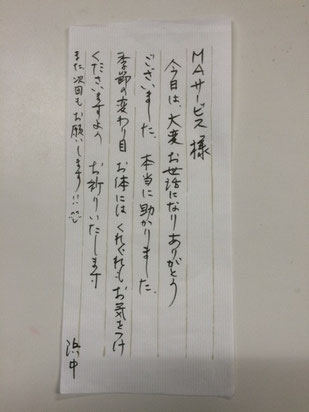 MAサービス様
今日は、大変お世話になりありがとう
ございました。本当に助かりました。
季節の変わり目 お体には くれぐれもお気をつけ
くださいますよう お祈りいたします
また、次回もお願いします!!
浜中